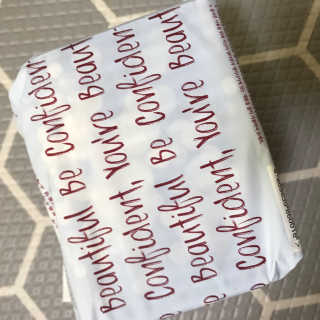 Beautiful Be Confiden
Confident, You're Beauti
Beautiful Be Confiden
Confident, You're Beaut